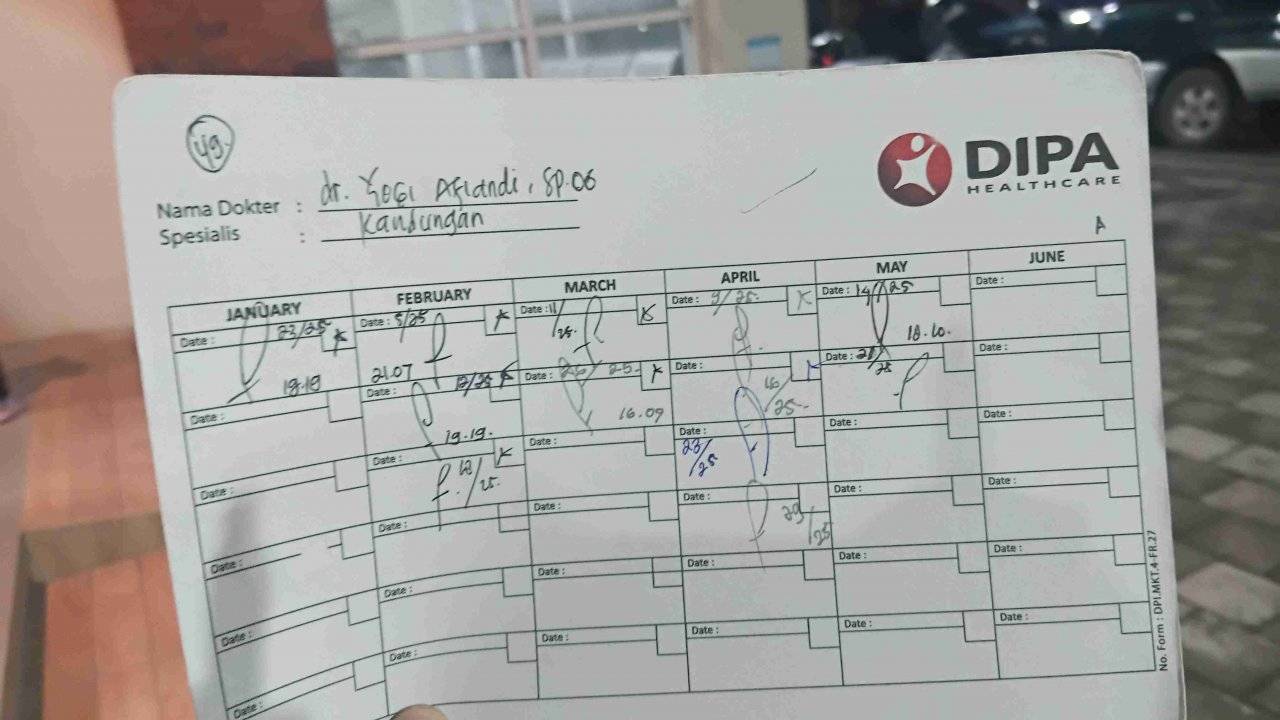 49
DIPA
HEALTHCARE
Nama Dokter : dr. Yogi Aflandi, SP.OG
Spesialis : Kandungan
A
JANUARY FEBRUARY MARCH APRIL MAY JUNE
Date : 23/25 K Date : 5/25 K Date : 11/25. K Date : 9/25. K Date : 14/25 Date :
19.19 21.07 18.10.
Date : Date : 12/25 K Date : 25. K Date : 16/25. Date : 21/25 Date :
19.19. 16.09
Date : Date : /25. K Date : Date : 23/25 Date : Date :
Date : Date : Date : Date : 29/25 Date : Date :
Date : Date : Date : Date : Date : Date :
Date : Date : Date : Date : Date : Date :
Date :
No. Form : DPI.MKT.4-FR.27